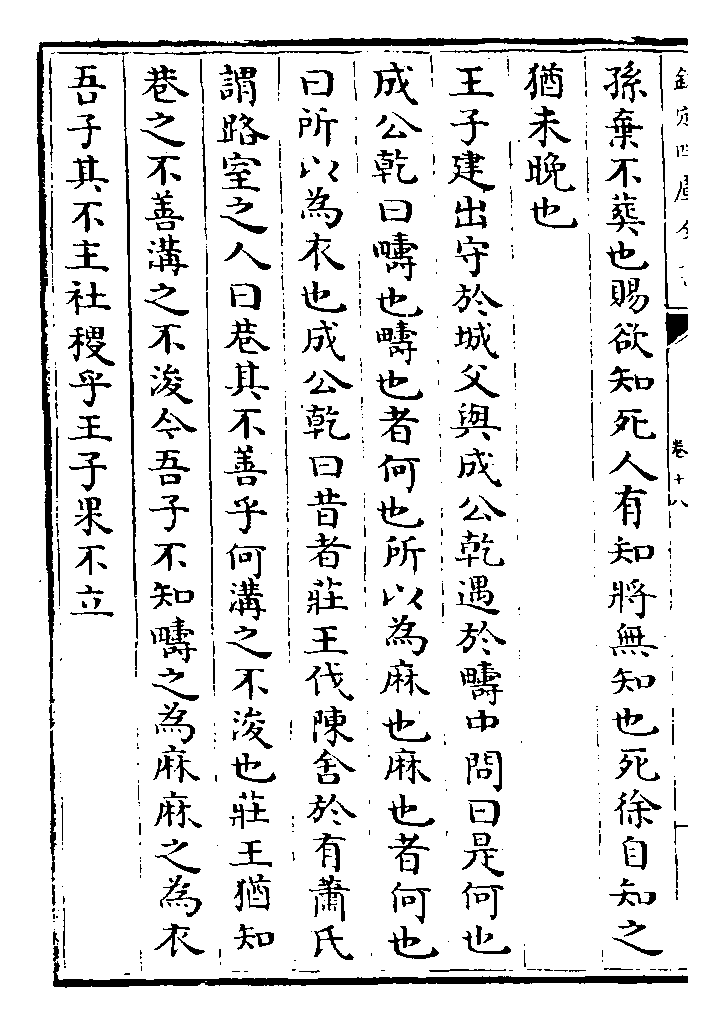 孫棄不葬也賜欲知死人有知將無知也死徐自知之
猶未晚也
王子建出守於城父與成公乾遇於疇中問曰是何也
成公乾曰疇也疇也者何也所以為麻也麻也者何也
曰所以為衣也成公乾曰昔者莊王伐陳舍於有蕭氏
謂路室之人曰巷其不善乎何溝之不浚也莊王猶知
巷之不善溝之不浚今吾子不知疇之為麻麻之為衣
吾子其不主社稷乎王子果不立
卷十八